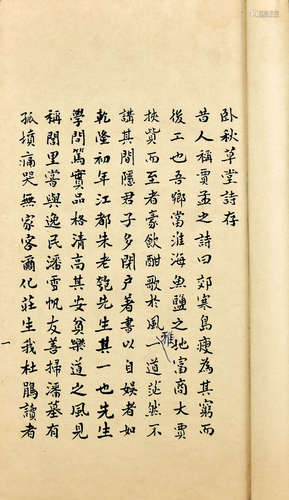 卧秋草堂詩存
昔人稱賈孟之詩曰郊寒島瘦為其窮而
後工也吾鄉當淮海魚鹽之地富商大賈
挾貲而至者豪飲酣歌於風雅一道茫然不
講其間隱君子多閉戶著書以自娛者如
乾隆初年江都朱老匏先生其一也先生
學問篤實品格清高其安貧樂道之風見
稱閭里嘗與逸民潘雪帆友善掃潘墓有
孤墳痛哭無家客爾化莊生我杜鵑讀者
一